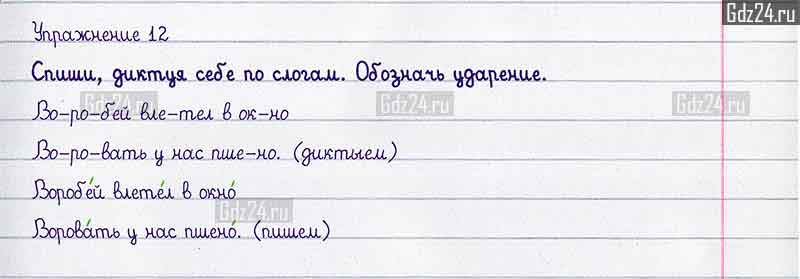 Gdz24.ru
Упражнение 12
Спиши, диктуя себе по слогам. Обозначь ударение.
Gdz24.ru Gdz24.ru Gdz24.ru
Во-ро-бей вле-тел в ок-но
Во-ро-вать у нас пше-но. (диктыем)
Воробе́й влете́л в окно́
Gdz24.ru
Ворова́ть у нас пшено́. (пишем)